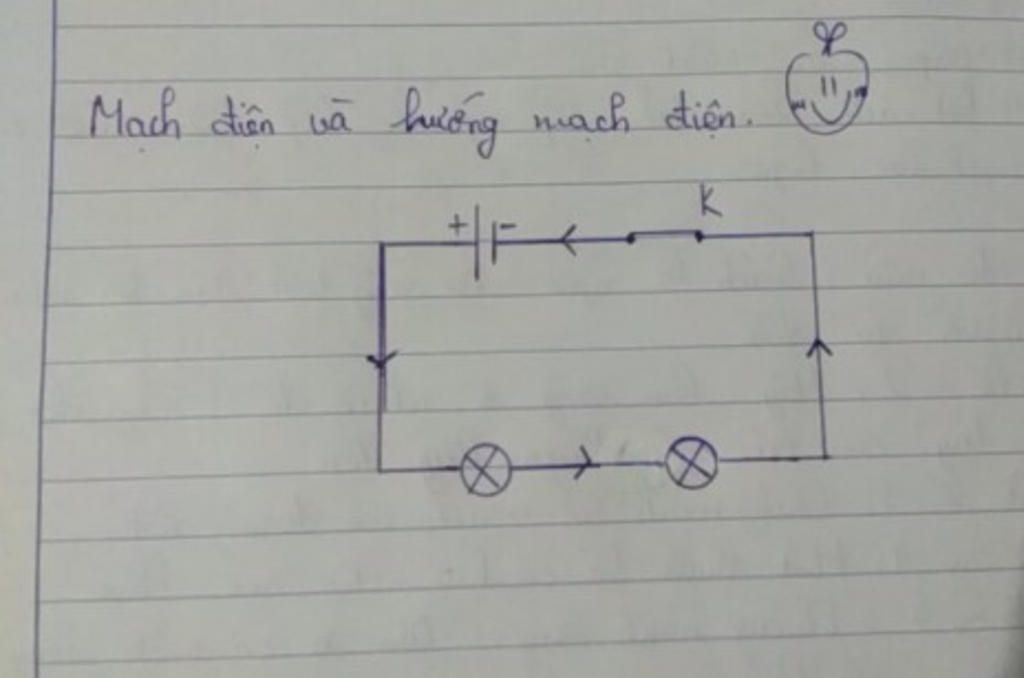 Mạch điện và hướng mạch điện.
K
+ -